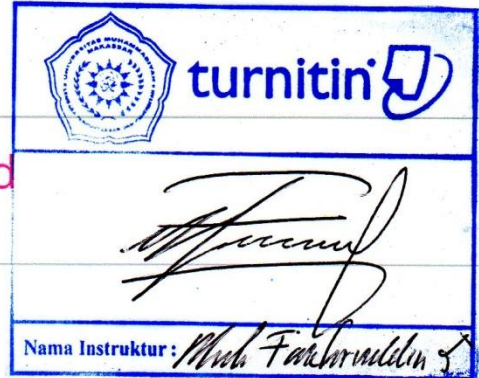 UNIVERSITAS MUHAMMADIYAH MAKASSAR
turnitin
d
Nama Instruktur : Muh Fachruddin S